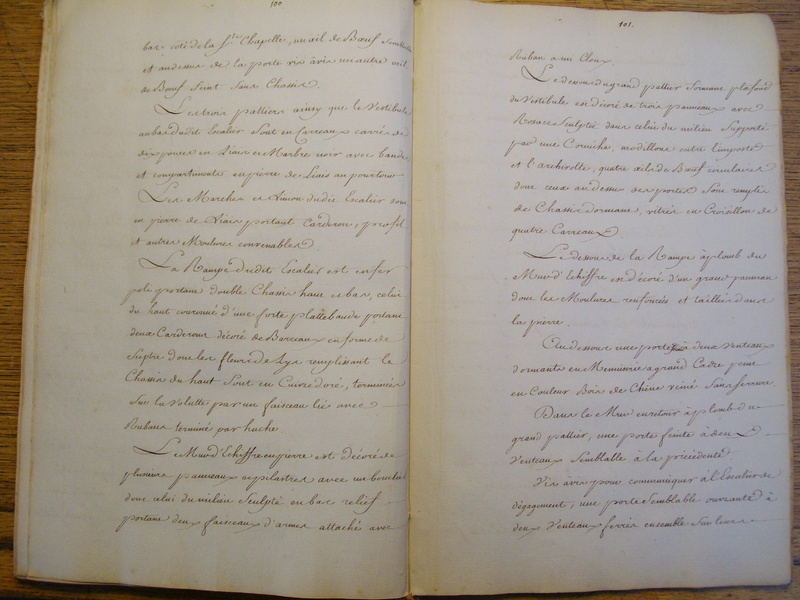 100
bas coté de la Ste Chapelle, un œil de Bœuf Semblable
et au dessus de la porte vis àvis un autre œil
de Bœuf Scint Sans Chassis.
Les trois palliers ainsy que le Vestibule
au bas dudit Escalier Sont en Carreaux carrés de
dix pouces en Liais et Marbre noir avec bandes
et compartiments en pierre de Liais au pourtour
Les Marches et Limon dudit Escalier Sont
en pierre de Liais portant Carderon, profil
et autres Moulures convenables.
La Rampe dudit Escalier est en fer
poli portant double Chassis haut et bas, celui
du haut couronné d'une forte plattebande portant
deux Carderons décoré de Barreaux en forme de
Sceptre dont les fleurs de Lys remplissant le
Chassis du haut Sont en Cuivre doré, terminés
Sur la Volutte par un faisceau lié avec
Rubans terminé par hache
Le Mur d'Echiffre en pierre est décoré de
plusieurs panneaux et pilastres avec un bouclier
dont celui du milieu Sculpté en bas relief
portant deux faisceaux d'armes attaché avec
101.
Ruban a un Cloux.
Le dessous du grand pallier Formant plafond
du Vestibule est décoré de trois panneaux avec
Rosace Sculptée dans celui du milieu Supporté
par une Corniche, modillons entre l'imposte
et l'archivolte, quatre œils de Bœuf circulaires
dont ceux au Dessus des portes Sont remplis
de Chassis dormants, vitrés en Croisillon de
quatre Carreaux
Le dessous de la Rampe àplomb du
Mur d'Echiffre est décoré d'un grand panneau
dont les Moulures renfoncées et taillées dans
la pierre.
Au dessous une porte à deux Venteaux
dormants en Menuiserie a grand Cadre peint
en Couleur Bois de Chêne veiné Sans ferrure.
Dans le Mur en retour àplomb du
grand pallier, une porte feinte à deux
Venteaux Semblable à la précédente
Vis àvis pour communiquer à l'Escalier de
dégagement, une porte Semblable ouvrante à
deux Venteaux ferrés ensemble Sur leurs